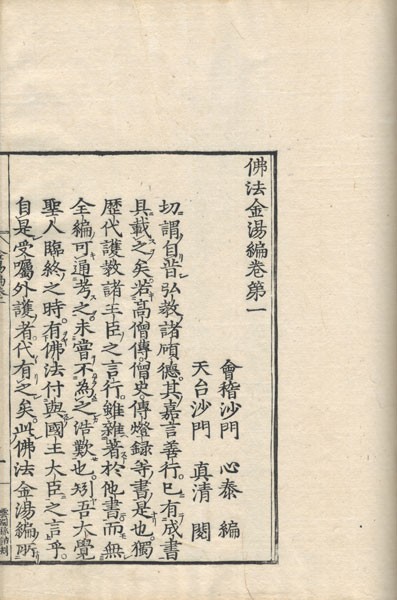 佛法金湯編卷第一
會稽沙門 心泰 編
天台沙門 真清 閱
切謂自昔弘教諸碩德其嘉言善行已有成書
具載之矣若高僧傳僧史傳燈錄等書是也獨
歷代護教諸王臣之言行雖雜著於他書而無
全編可通考之未嘗不為之浩歎也矧吾大覺
聖人臨終之時有佛法付與國王大臣之言乎
自是受囑外護者代有之矣此佛法金湯編所